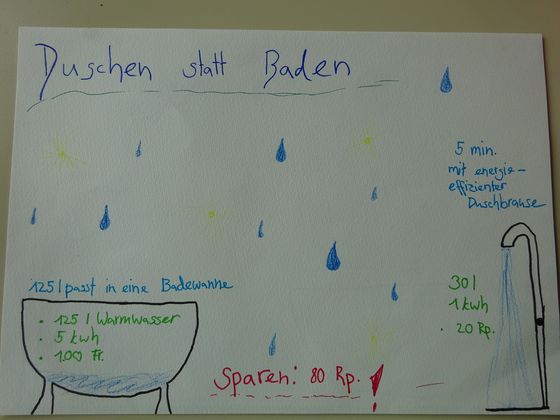 Duschen statt Baden
5 min.
mit energie-
effizienter
Duschbrause
125 l passt in eine Badewanne
• 125 l Warmwasser
• 5 kwh
• 1.00 Fr.
30 l
1 kwh
• 20 Rp.
Sparen: 80 Rp. !